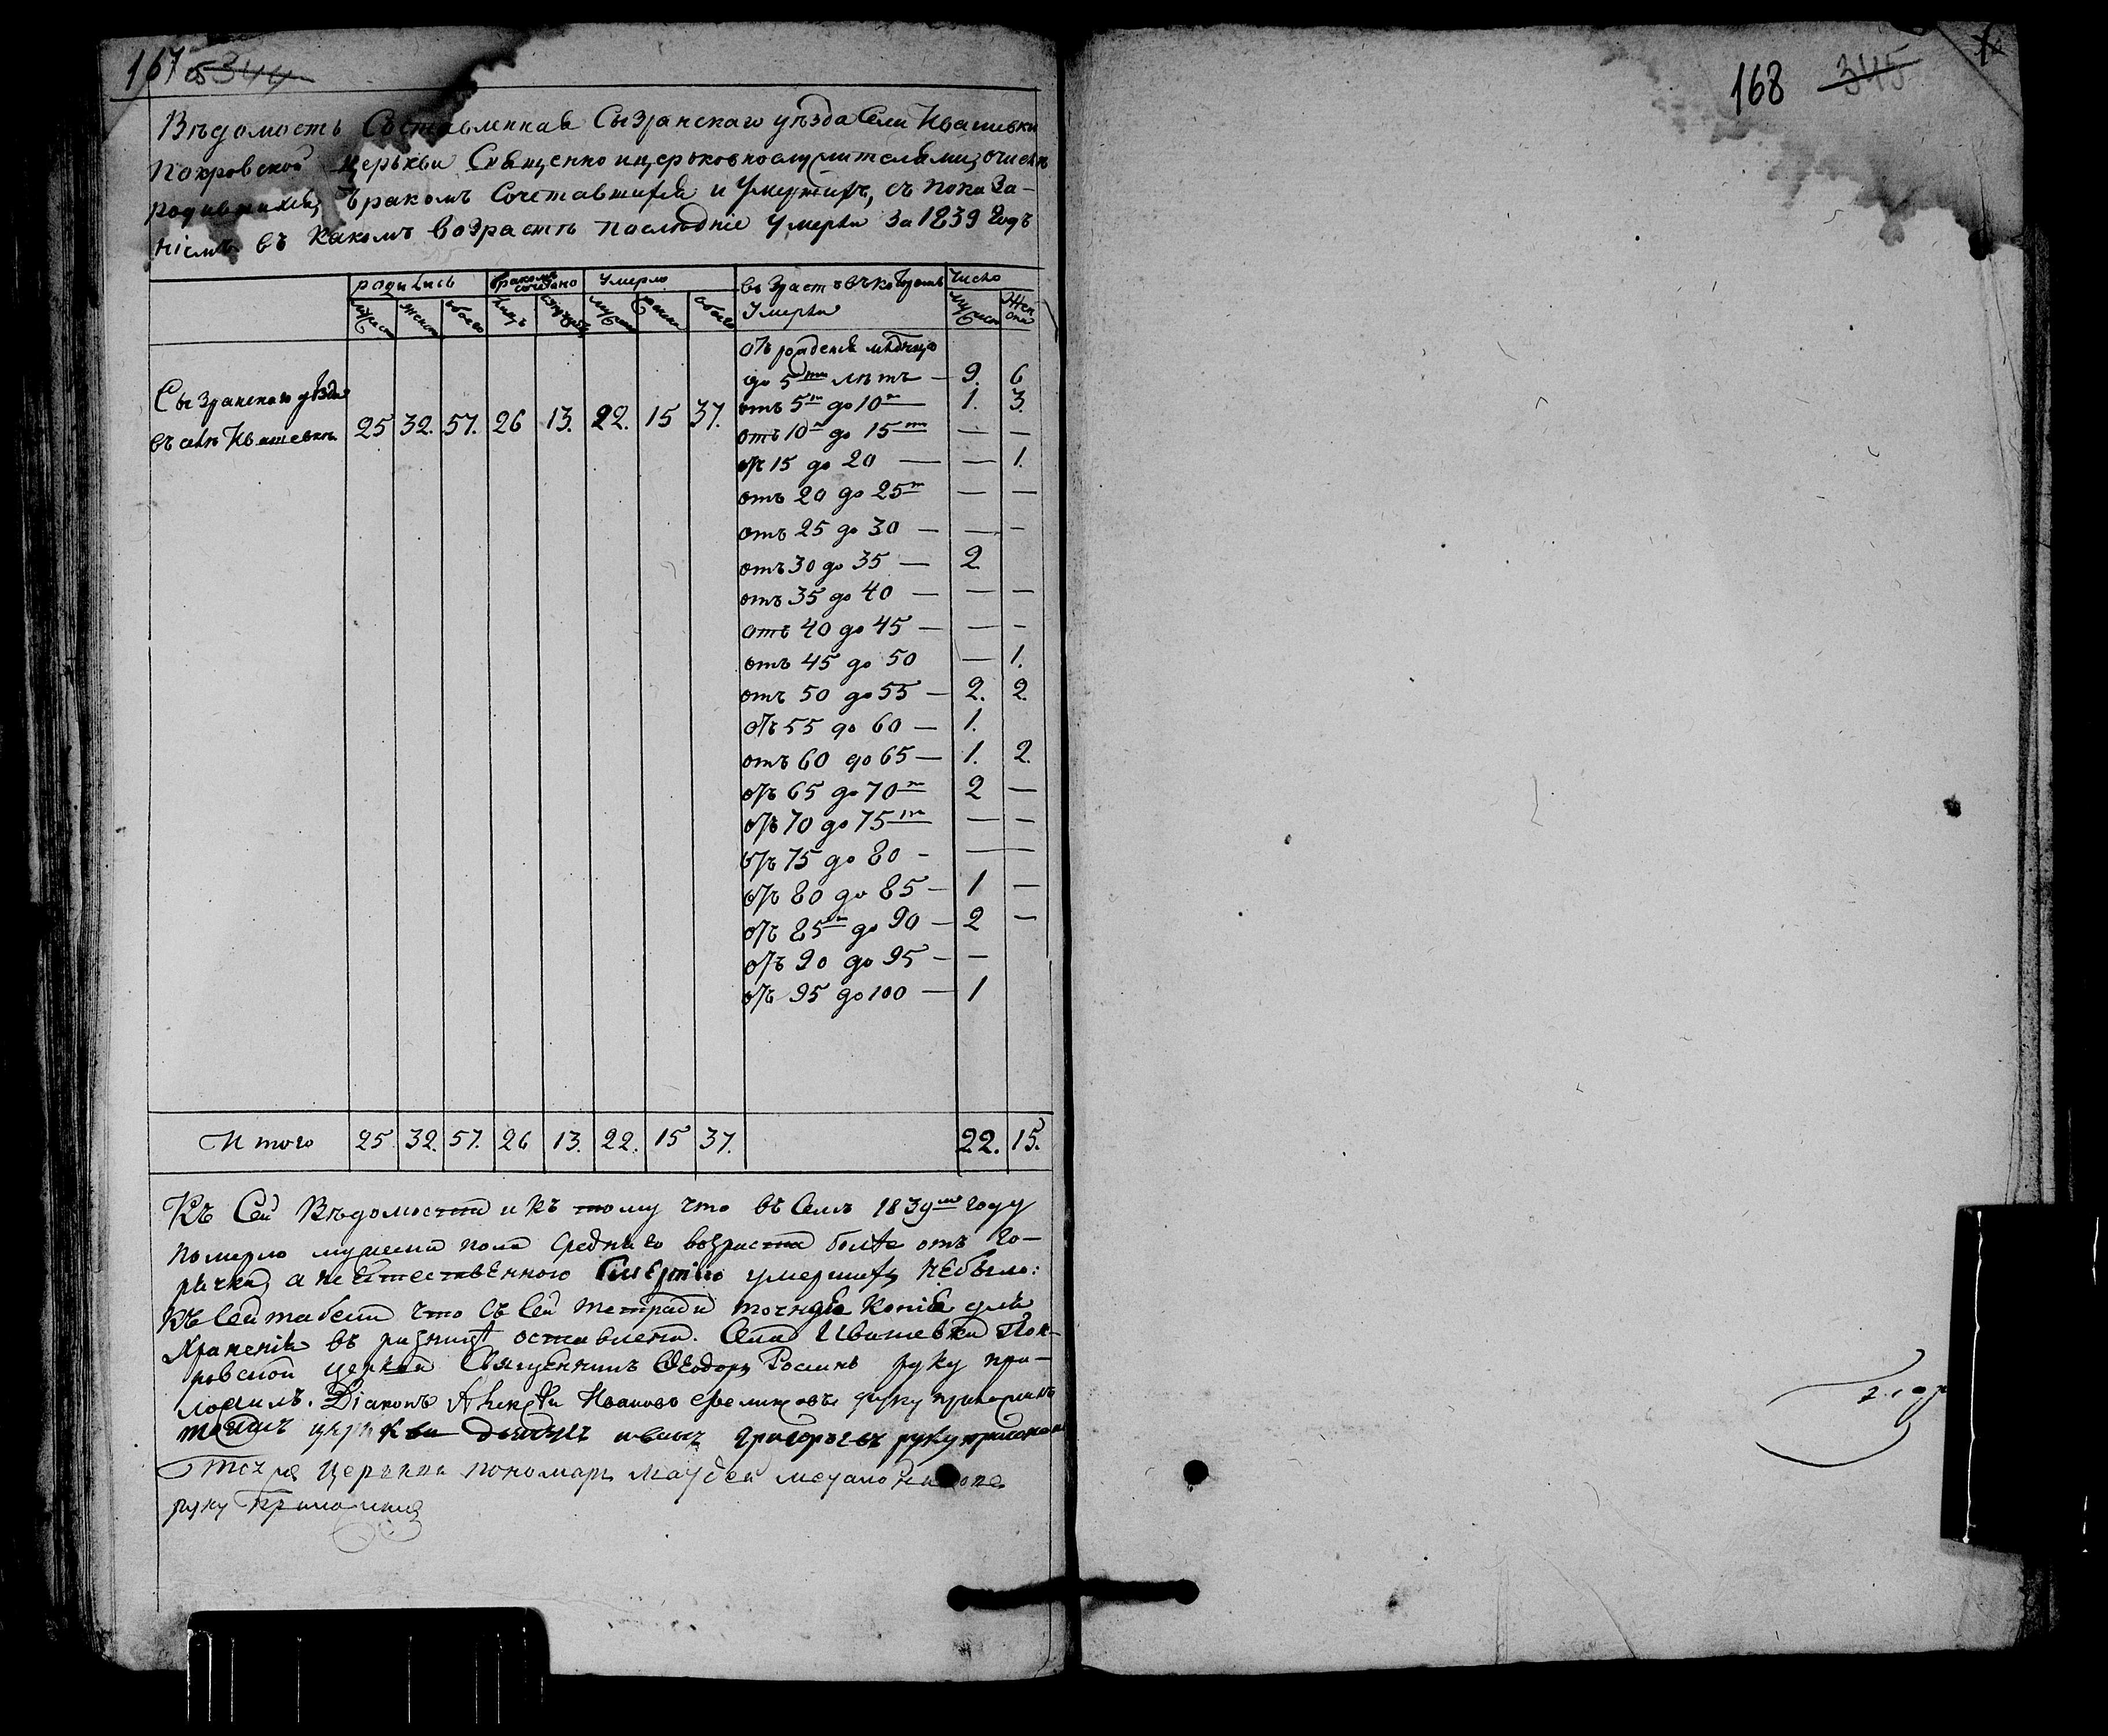 167 об 344
Вѣдомость Составленная Сызранскаго уѣзда Села Ивашевки
Покровской церькви Священно и церьковнослужителями, о числѣ
родившихся, бракомъ сочетавшихся и Умершихъ, съ показа-
ніемъ въ какомъ возрастѣ послѣдніе Умерли за 1839 годъ
родились бракомъ сочетано Умерло возрастъ въ которомъ Умерли число
мужеск женск обоего лицъ мужеск женск обоего мужеск женска
Отъ рожденія
до 5ти лѣтъ — 9. 6
Сызранскаго уѣзда
въ селѣ Ивашевкѣ 25 32. 57. 26 13. 22. 15 37.
отъ 5ти до 10ти — 1. 3.
отъ 10ти до 15ти — —
отъ 15 до 20 — — 1.
отъ 20 до 25ти — —
отъ 25 до 30 — — —
отъ 30 до 35 — 2
отъ 35 до 40 — — —
отъ 40 до 45 — — —
отъ 45 до 50 — 1.
отъ 50 до 55 — 2. 2.
отъ 55 до 60 — 1.
отъ 60 до 65 — 1. 2.
отъ 65 до 70ти 2 —
отъ 70 до 75ти — —
отъ 75 до 80 - — —
отъ 80 до 85 — 1 —
отъ 85ти до 90 — 2 —
отъ 90 до 95 — —
отъ 95 до 100 — 1
Итого 25 32. 57. 26 13. 22. 15 37. 22. 15.
Къ Сей Вѣдомости и къ тому что въ семъ 1839мъ году
померло мужеска пола средняго возраста болѣе отъ го-
рячки, а неестественного Смертію умершихъ небыло:
Къ сей табели что съ сей тетради точная копія для
храненія въ ризницѣ оставлена. Села Ивашевки Пок-
ровской церкви Священникъ Ѳеодоръ руку при-
ложилъ. Діаконъ Алексѣй Ивановъ руку приложилъ
тоя церькви дьячекъ иванъ григорьевъ руку приложилъ
Тоя церькви пономарь Матвей
руку Приложилъ
168 345